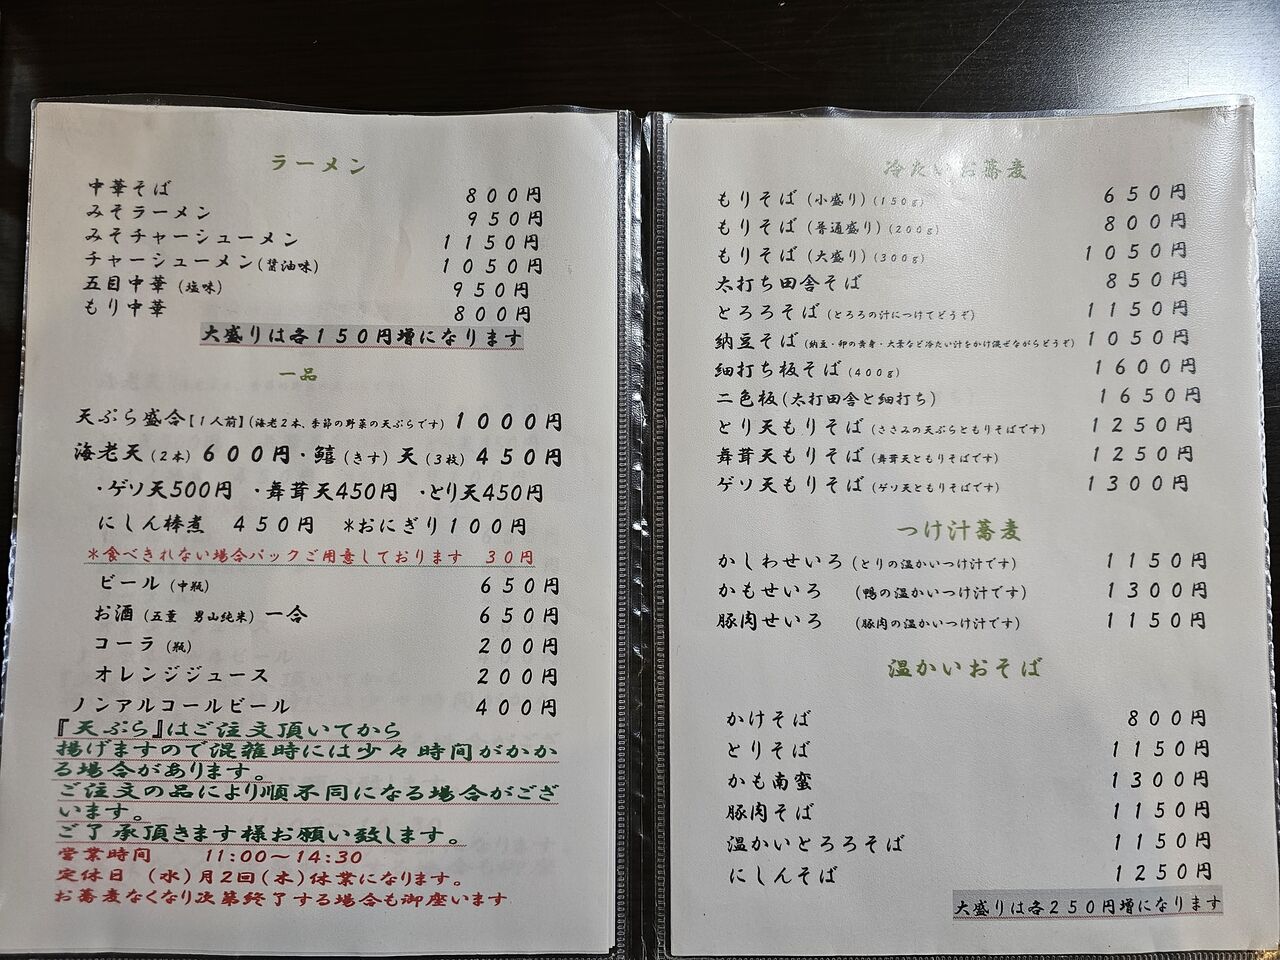 ラーメン
中華そば 800円
みそラーメン 950円
みそチャーシューメン 1150円
チャーシューメン(醤油味) 1050円
五目中華(塩味) 950円
もり中華 800円
大盛りは各150円増になります
一品
天ぷら盛合【1人前】(海老2本、季節の野菜の天ぷらです) 1000円
海老天(2本)600円・鱚(きす)天(3枚)450円
・ゲソ天500円 ・舞茸天450円 ・とり天450円
にしん棒煮 450円 *おにぎり100円
*食べきれない場合パックご用意しております 30円
ビール(中瓶) 650円
お酒(五薫 男山純米)一合 650円
コーラ(瓶) 200円
オレンジジュース 200円
ノンアルコールビール 400円
『天ぷら』はご注文頂いてから
揚げますので混雑時には少々時間がかか
る場合があります。
ご注文の品により順不同になる場合がござ
います。
ご了承頂きます様お願い致します。
営業時間 11:00~14:30
定休日 (水)月2回(木)休業になります。
お蕎麦なくなり次第終了する場合も御座います
冷たいお蕎麦
もりそば(小盛り)(150g) 650円
もりそば(普通盛り)(200g) 800円
もりそば(大盛り)(300g) 1050円
太打ち田舎そば 850円
とろろそば(とろろの汁につけてどうぞ) 1150円
納豆そば(納豆・卵の黄身・大葉など冷たい汁をかけ混ぜながらどうぞ) 1050円
細打ち板そば(400g) 1600円
二色板(太打田舎と細打ち) 1650円
とり天もりそば(ささみの天ぷらともりそばです) 1250円
舞茸天もりそば(舞茸天ともりそばです) 1250円
ゲソ天もりそば(ゲソ天ともりそばです) 1300円
つけ汁蕎麦
かしわせいろ(とりの温かいつけ汁です) 1150円
かもせいろ (鴨の温かいつけ汁です) 1300円
豚肉せいろ (豚肉の温かいつけ汁です) 1150円
温かいおそば
かけそば 800円
とりそば 1150円
かも南蛮 1300円
豚肉そば 1150円
温かいとろろそば 1150円
にしんそば 1250円
大盛りは各250円増になります